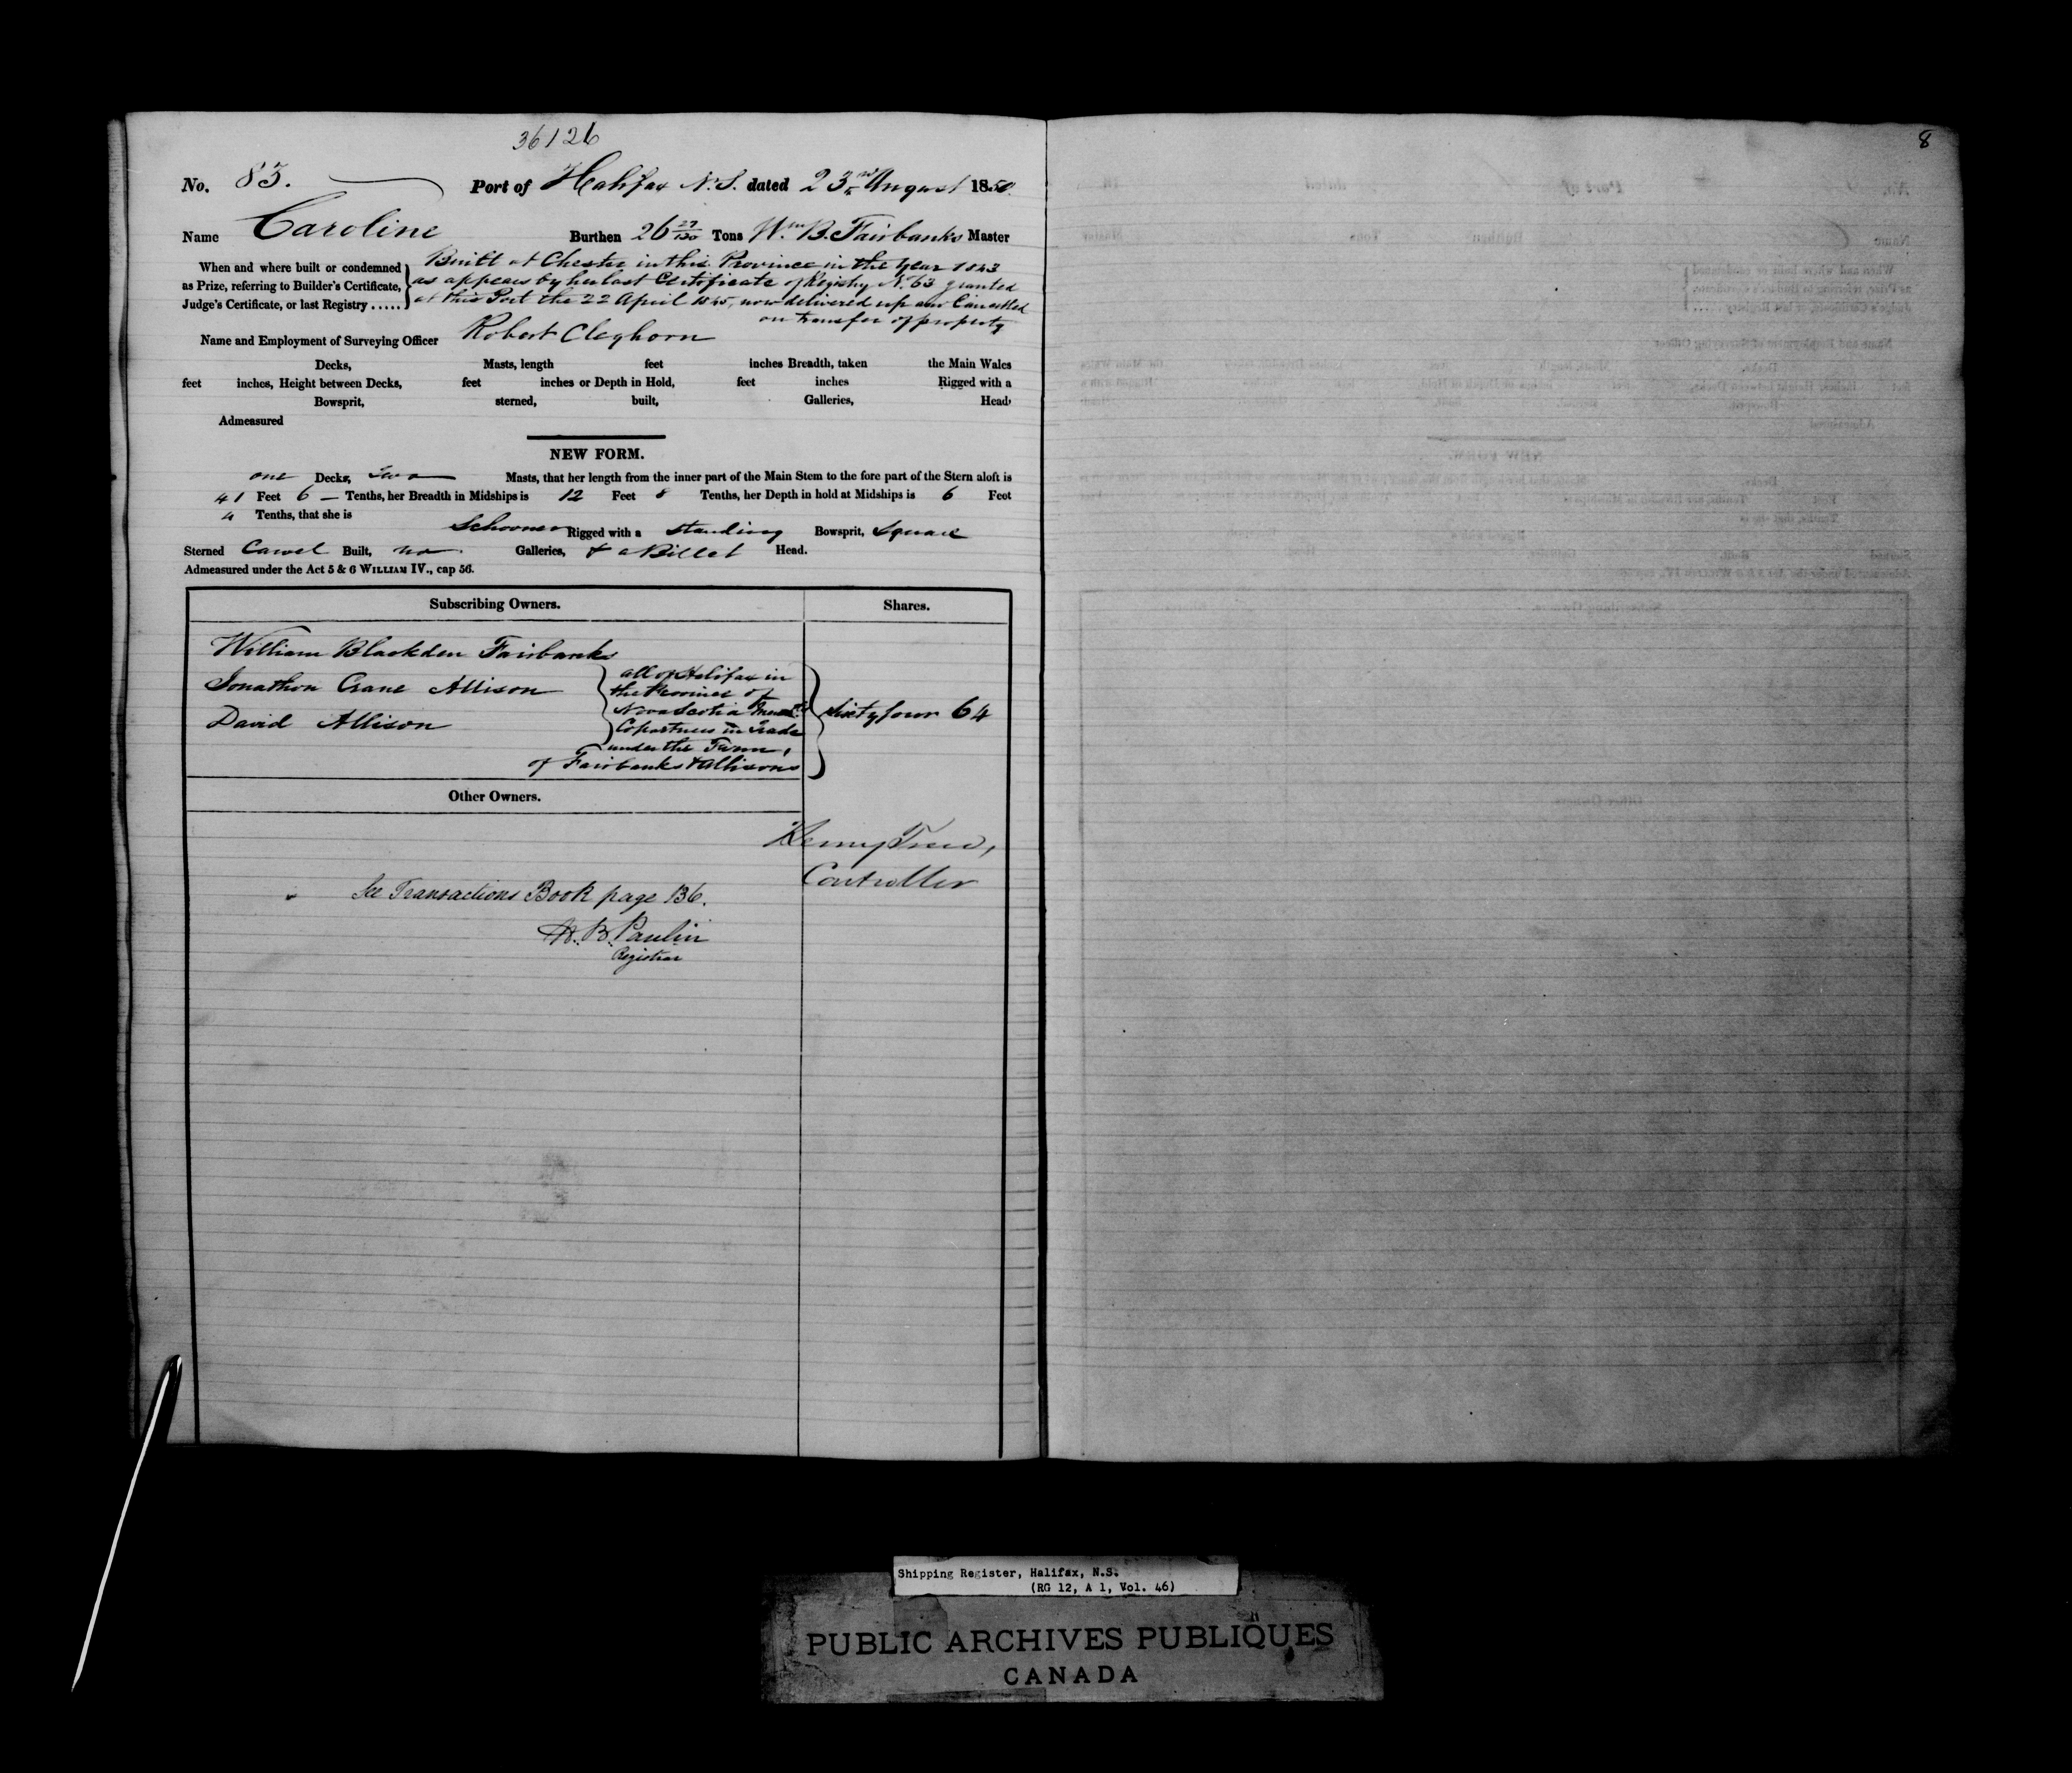 36126
8
No. 83. Port of Halifax N.S. dated 23rd August 1850.
Name Caroline Burthen 26 27/130 Tons Wm B. Fairbanks Master
When and where built or condemned
as Prize, referring to Builder's Certificate,
Judge's Certificate, or last Registry .....
Built at Chester in this Province in the Year 1843
as appears by her last Certificate of Registry No. 63 granted
at this Port the 22 April 1845, now delivered up and Cancelled
on transfer of property
Name and Employment of Surveying Officer Robert Cleghorn
Decks, Masts, length feet inches Breadth, taken the Main Wales
feet inches, Height between Decks, feet inches or Depth in Hold, feet inches Rigged with a
Bowsprit, sterned, built, Galleries, Head,
Admeasured
NEW FORM.
one Decks, two Masts, that her length from the inner part of the Main Stem to the fore part of the Stern aloft is
41 Feet 6 — Tenths, her Breadth in Midships is 12 Feet 8 Tenths, her Depth in hold at Midships is 6 Feet
4 Tenths, that she is
Schooner Rigged with a standing Bowsprit, Square
Sterned Carvel Built, no Galleries, & a Billet Head.
Admeasured under the Act 5 & 6 WILLIAM IV., cap 56.
Subscribing Owners. Shares.
William Blackden Fairbanks
Jonathon Crane Allison
David Allison
all of Halifax in
the Province of
Nova Scotia
Copartners in Trade
under the Firm,
of Fairbanks & Allisons
sixty four 64
Other Owners.
Controller
See Transactions Book page 136.
H. B. Paulin
Registrar
Shipping Register, Halifax, N.S.
(RG 12, A 1, Vol. 46)
PUBLIC ARCHIVES PUBLIQUES
CANADA